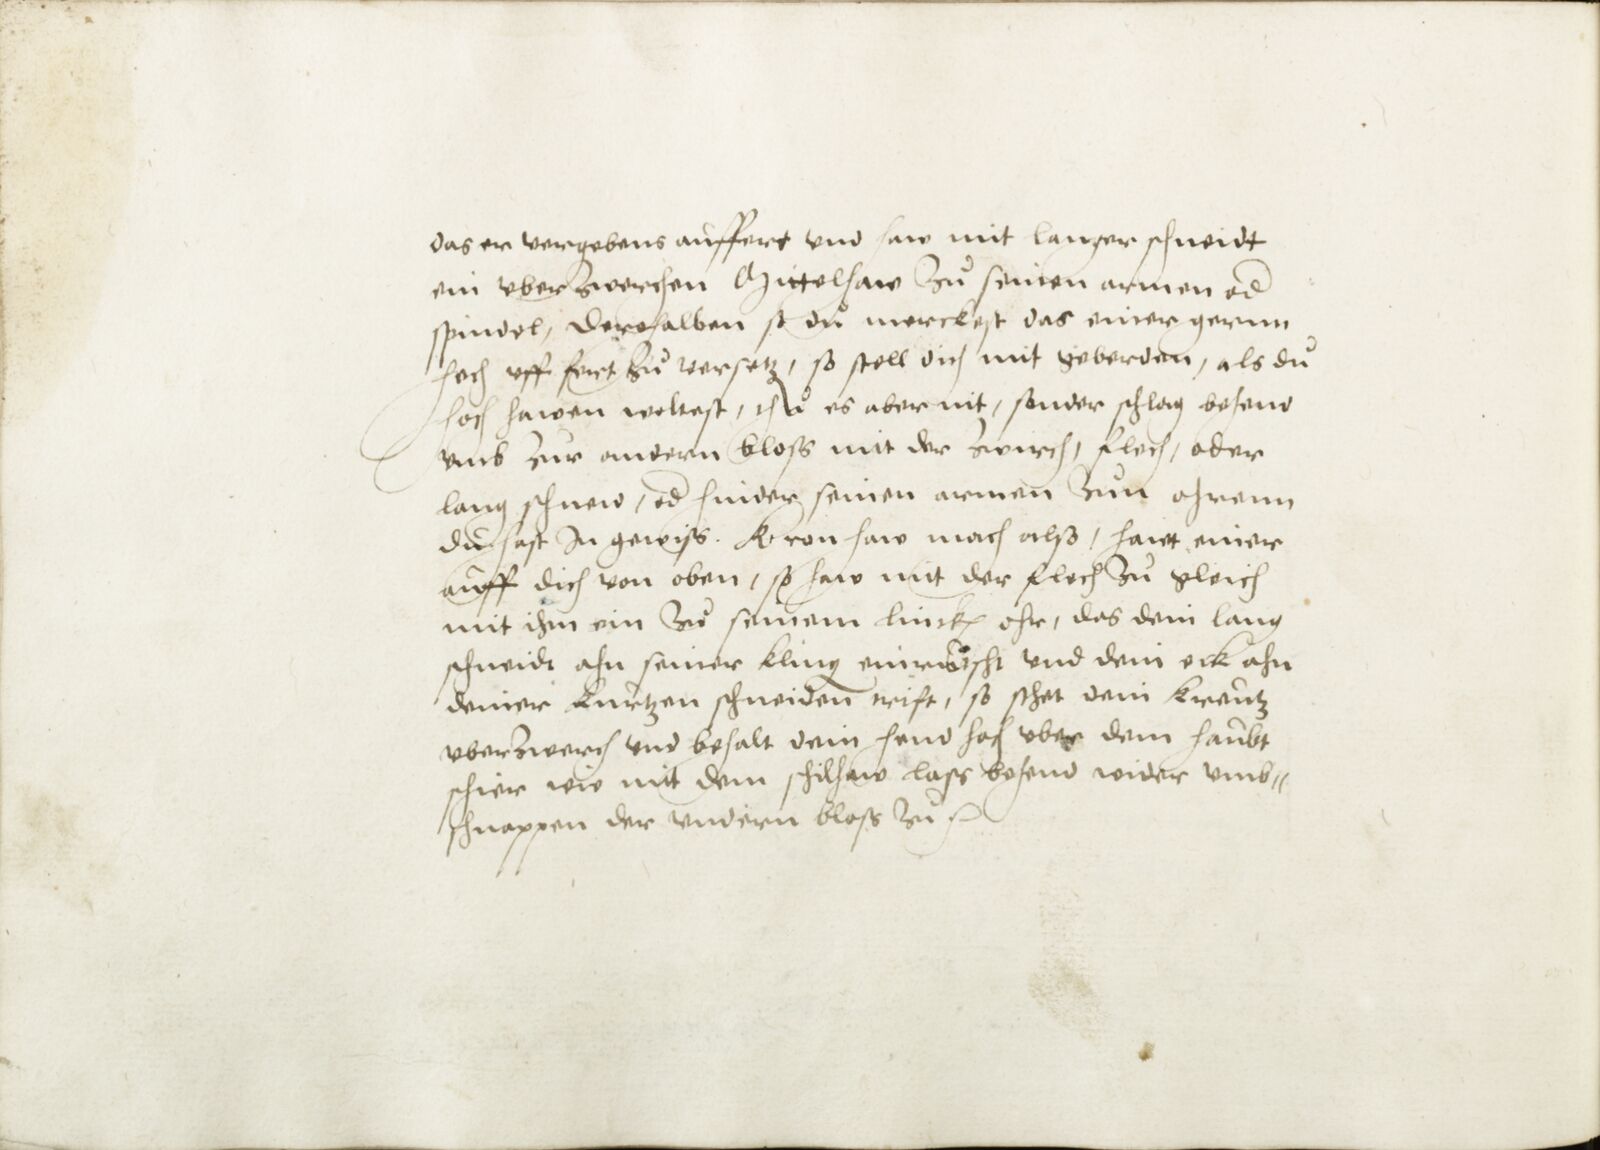 das er vergebens auffert vnd haw mit langer schneidt
ein vberzwerchen Mittelhaw zu seinen armen od
spindel, derohalben so du merckest das einer gernn
hoch vff fert zu versetz, so stell dich mit geberden, als du
hoch hawen woltest, thu es aber nit, sonder schlag behend
vmb zur andern bloss mit der zwirch, flech, oder
lang schneid, od hinder seinen armen zun ohrenn
du hast In gewiss. Kron haw mach alss, hawt einer
auff dich von oben, so haw mit der flech zu gleich
mit ihm ein zu seinem linck ohr, das dein lang
schneidt ahn seiner kling einrüscht vnd dein eck ahn
deiner kurtzen schneiden trift, so schet dein kreutz
vberzwerch vnd behalt dein hend hoch vber dem haubt
schier wie mit dem schilhaw lass behend wider vmb,,
schnappen der vndern bloss zu